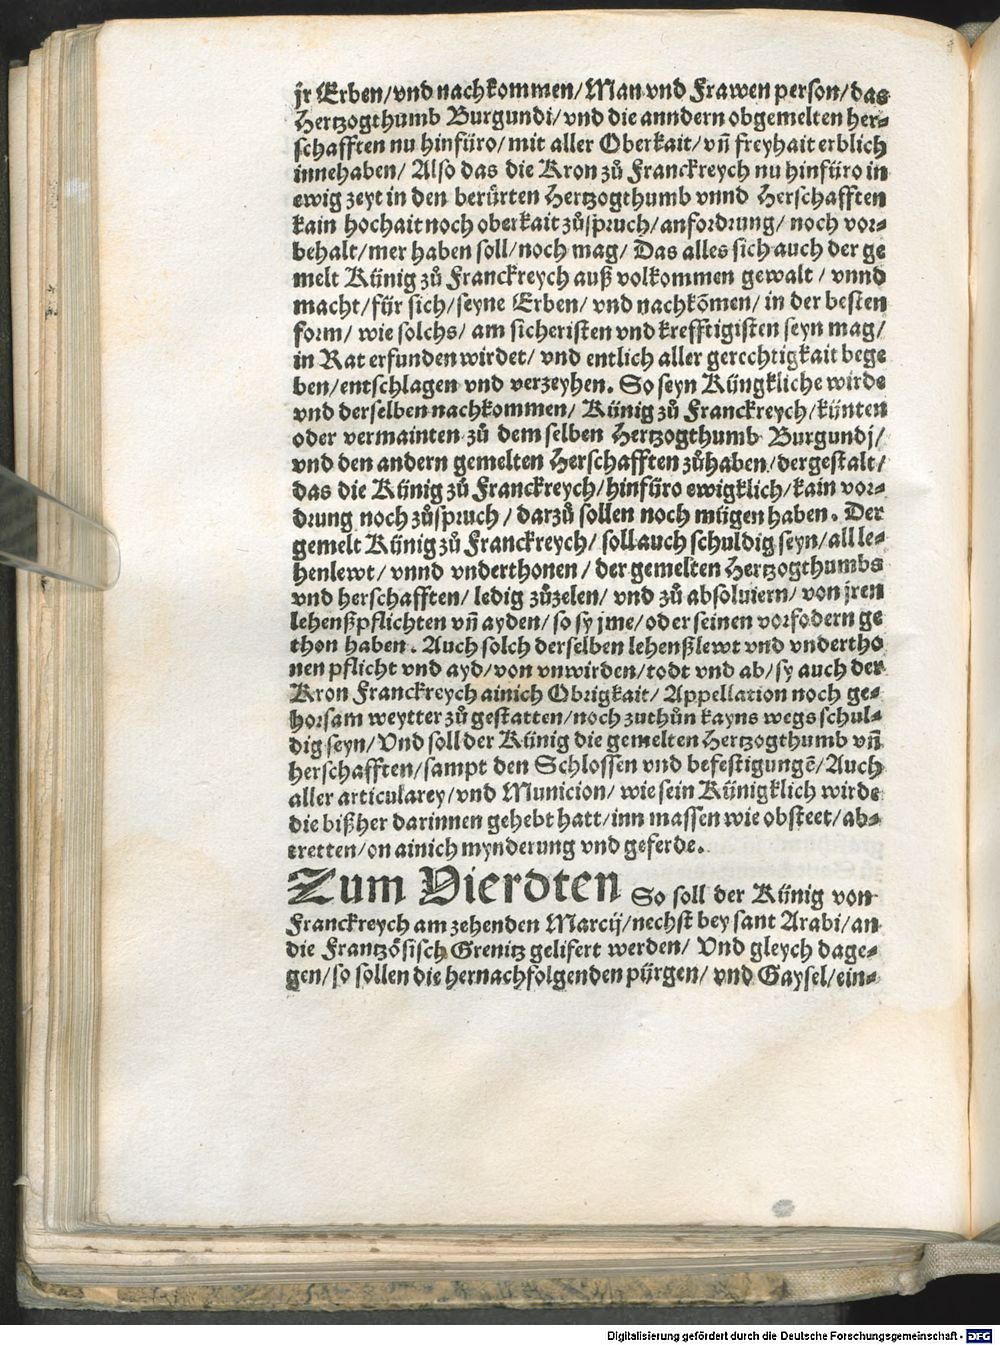 jr Erben/vnd nachkommen/Man vnd Frawen person/das
Hertzogthumb Burgundi/vnd die anndern obgemelten her⸗
schafften nu hinfüro/mit aller Oberkait/vñ freyhait erblich
innehaben/ Also das die Kron zů Franckreych nu hinfüro in
ewig zeyt in den berürten Hertzogthumb vnnd Herschafften
kain hochait noch oberkait zůspruch/anfordrung/ noch vor⸗
behalt/mer haben soll/noch mag/ Das alles sich auch der ge
melt Künig zů Franckreych auß volkommen gewalt / vnnd
macht/für sich/seyne Erben/ vnd nachkõmen/ in der besten
form/ wie solchs/ am sicheristen vnd krefftigisten seyn mag/
in Rat erfunden wirdet/ vnd entlich aller gerechtigkait bege
ben/entschlagen vnd verzeyhen. So seyn Küngkliche wirde
vnd derselben nachkommen/ Künig zů Franckreych/künten
oder vermainten zů dem selben Hertzogthumb Burgundj/
vnd den andern gemelten Herschafften zůhaben/dergestalt/
das die Künig zů Franckreych/hinfüro ewigklich/kain vor⸗
drung noch zůspruch / darzů sollen noch mügen haben. Der
gemelt Künig zů Franckreych/ soll auch schuldig seyn/all le⸗
henlewt/ vnnd vnderthonen / der gemelten Hertzogthumbs
vnd herschafften/ ledig zůzelen/ vnd zů absoluiern/ von jren
lehenßpflichten vñ ayden/ so sy jme/ oder seinen vorfodern ge
thon haben. Auch solch derselben lehenßlewt vnd vndertho
nen pflicht vnd ayd/von vnwirden/todt vnd ab/sy auch der
Kron Franckreych ainich Obrigkait/ Appellation noch ge⸗
horsam weytter zů gestatten/noch zuthůn kayns wegs schul⸗
dig seyn/Vnd soll der Künig die gemelten Hertzogthumb vñ
herschafften/sampt den Schlossen vnd befestigungẽ/Auch
aller articularey/vnd Municion/ wie sein Künigklich wirde
die bißher darinnen gehebt hatt/inn massen wie obsteet/ab⸗
tretten/on ainich mynderung vnd geferde.
Zum Vierdten So soll der Künig von
Franckreych am zehenden Marcij/nechst bey sant Arabi/an
die Frantzősisch Grenitz gelifert werden/ Vnd gleych dage⸗
gen/so sollen die hernachfolgenden pürgen/ vnd Gaysel/ein⸗
Digitalisierung gefördert durch die Deutsche Forschungsgemeinschaft - DFG